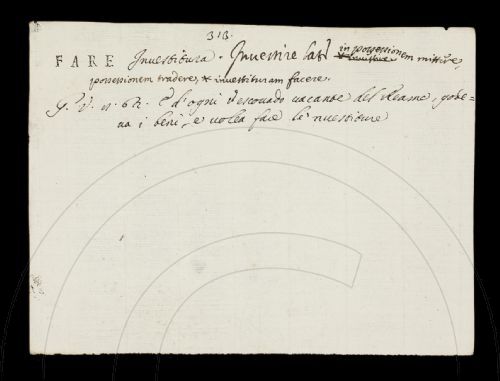 313.
FARE Investitura. Investire lat. in possessionem mittere,
possessionem tradere, & investituram facere.
G. V. 11. 62. E d'ogni Vescovado vacante del Reame, gode-
va i beni, e volea fare le 'nvestiture